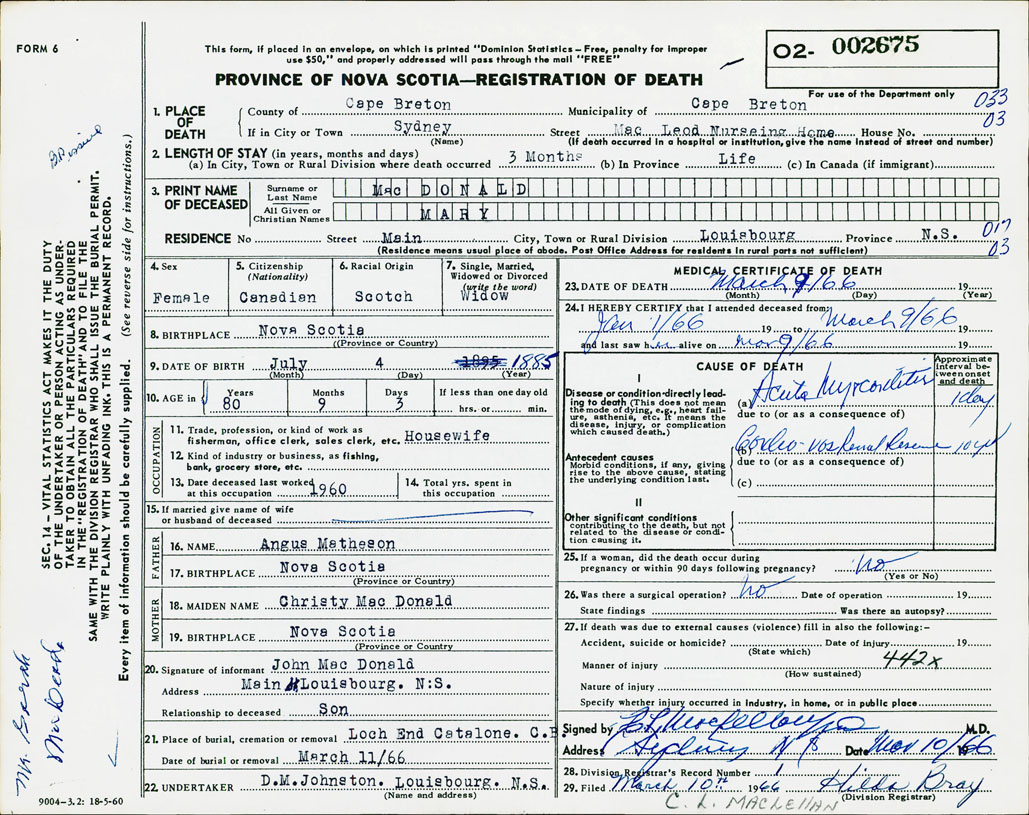 FORM 6
This form, if placed in an envelope, on which is printed "Dominion Statistics – Free, penalty for improper
use $50," and properly addressed will pass through the mail "FREE"
O2- 002675
PROVINCE OF NOVA SCOTIA—REGISTRATION OF DEATH
For use of the Department only
033
03
1. PLACE OF DEATH
County of Cape Breton Municipality of Cape Breton
If in City or Town Sydney Street Mac Leod Nurseing Home House No.
(Name) (If death occurred in a hospital or institution, give the name instead of street and number)
2. LENGTH OF STAY (in years, months and days)
(a) In City, Town or Rural Division where death occurred 3 Months (b) In Province Life (c) In Canada (if immigrant)
3. PRINT NAME OF DECEASED
Surname or Last Name Mac DONALD
All Given or Christian Names MARY
RESIDENCE No Street Main City, Town or Rural Division Louisbourg Province N.S.
(Residence means usual place of abode. Post Office Address for residents in rural parts not sufficient)
017
03
4. Sex Female
5. Citizenship (Nationality) Canadian
6. Racial Origin Scotch
7. Single, Married, Widowed or Divorced (write the word) Widow
8. BIRTHPLACE Nova Scotia
(Province or Country)
9. DATE OF BIRTH July 4 1895 1885
(Month) (Day) (Year)
10. AGE in Years Months Days If less than one day old
80 9 3 hrs. or min.
OCCUPATION
11. Trade, profession, or kind of work as
fisherman, office clerk, sales clerk, etc. Housewife
12. Kind of industry or business, as fishing,
bank, grocery store, etc.
13. Date deceased last worked at this occupation 1960
14. Total yrs. spent in this occupation
15. If married give name of wife
or husband of deceased
FATHER
16. NAME Angus Matheson
17. BIRTHPLACE Nova Scotia
(Province or Country)
MOTHER
18. MAIDEN NAME Christy Mac Donald
19. BIRTHPLACE Nova Scotia
(Province or Country
20. Signature of informant John Mac Donald
Address Main Louisbourg. N:S.
Relationship to deceased Son
21. Place of burial, cremation or removal Loch End Catalone. C.B
Date of burial or removal March 11/66
22. UNDERTAKER D.M.Johnston. Louisbourg. N.S.
(Name and address)
MEDICAL CERTIFICATE OF DEATH
23. DATE OF DEATH March 9/66
(Month) (Day) (Year)
24. I HEREBY CERTIFY that I attended deceased from:
Jan 1/66 19 to March 9/66 19
and last saw her alive on Mar 9/66 19
CAUSE OF DEATH
Approximate interval between onset and death
I
Disease or condition directly leading to death (This does not mean the mode of dying, e.g., heart failure, asthenia, etc. It means the disease, injury, or complication which caused death.)
(a) Acute Myocarditis 1 day
due to (or as a consequence of)
Antecedent causes
Morbid conditions, if any, giving rise to the above cause, stating the underlying condition last.
(b) Renal 10 yr
due to (or as a consequence of)
(c)
II
Other significant conditions
contributing to the death, but not related to the disease or condition causing it.
25. If a woman, did the death occur during
pregnancy or within 90 days following pregnancy? No
(Yes or No)
26. Was there a surgical operation? No Date of operation 19
State findings Was there an autopsy?
27. If death was due to external causes (violence) fill in also the following:–
Accident, suicide or homicide? Date of injury 19
(State which)
442x
Manner of injury
(How sustained)
Nature of injury
Specify whether injury occurred in industry, in home, or in public place
Signed by M.D.
Address Sydney N S Date Mar 10/66
28. Division Registrar's Record Number 1
29. Filed March 10th 1966 Hilda Bray
(Division Registrar)
C. L. MACLELLAN
SEC. 14 – VITAL STATISTICS ACT MAKES IT THE DUTY
OF THE UNDERTAKER OR PERSON ACTING AS UNDER-
TAKER TO OBTAIN ALL THE PARTICULARS REQUIRED
IN THE "REGISTRATION OF DEATH" AND TO FILE THE
SAME WITH THE DIVISION REGISTRAR WHO SHALL ISSUE THE BURIAL PERMIT.
WRITE PLAINLY WITH UNFADING INK. THIS IS A PERMANENT RECORD.
Every item of information should be carefully supplied. (See reverse side for instructions.)
9004–3.2: 18-5-60